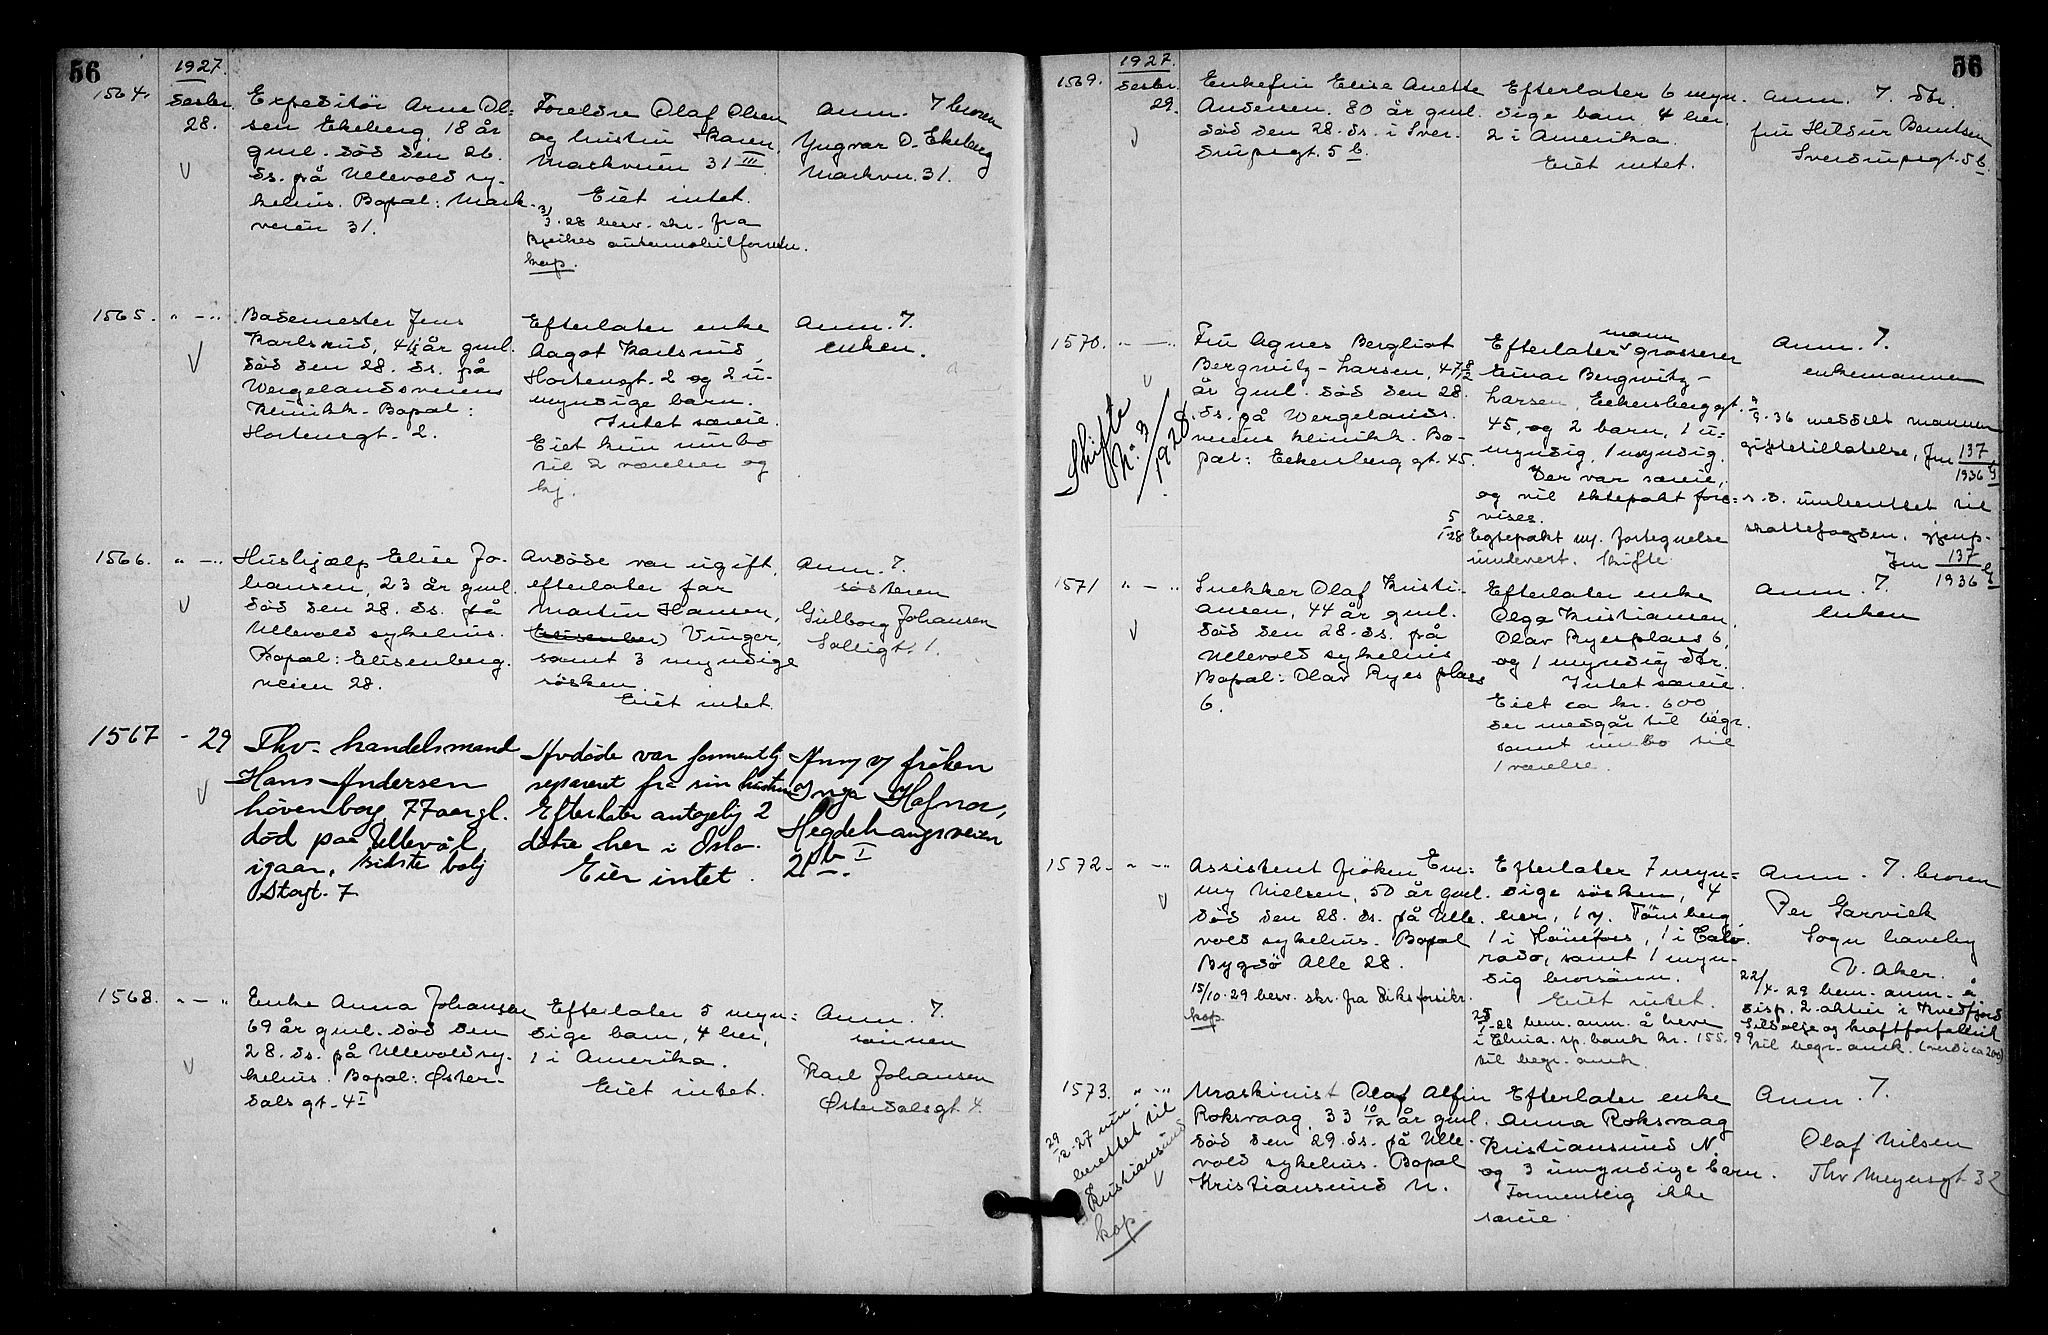 56
1927.
1564.
Desbr. 28.
Expeditör Arne Ol=
sen Ekeberg, 18 år
gml. död den 26.
ds. på Ullevold sy-
kehus. Bopæl: Mark-
veien 31.
Foreldre Olaf Olsen
og hustru Karen,
Markveien 31 III
Eiet intet.
3/3-28 besv. skr. fra
automobilforret.
kop.
Anm. 7 broren
Yngvar O. Ekeberg
Markvn. 31.
1565. " - "
Bademester Jens
Karlsrud, 41 år gml.
död den 28. ds. på
Wergelandsveiens
Klinikk. Bopæl:
Hortensgt. 2.
Efterlater enke
Aagot Karlsrud,
Hortensgt. 2 og 2 u-
myndige barn.
Intet særeie.
Eiet kun innbo
til 2 værelser og
kj.
Anm. 7.
enken.
1566. " - "
Hushjælp Elise Jo-
hansen, 23 år gml.
död den 28. ds. på
Ullevold sykehus.
Bopæl: Elisenberg-
veien 28.
Avdöde var ugift,
efterlater far
Martin Hansen,
Vinger,
samt 3 myndige
søsken.
Eiet intet.
Anm. 7.
søsteren
Gulborg Johansen
Solligt. 1.
1567 - 29
Fhv. handelsmand
Hans Andersen
hövenborg, 77 aar gl.
död paa Ullevål
igaar, sidste bolig
Storgt. 7
Avdöde var formentlig
separeret fra sin hustru
Efterlater antagelig 2
døtre her i Oslo.
Eier intet.
Anm v/ frøken
Inga Hafnor,
Hegdehaugsveien
2 b I
1568. " - "
Enke Anna Johansen
69 år gml. död den
28. ds. på Ullevold sy-
kehus. Bopæl: Øster-
dals gt. 4 I
Efterlater 5 myn=
dige barn, 4 her,
1 i Amerika.
Eiet intet.
Anm. 7.
sönnen
Karl Johansen
Østerdalsgt. 4.
56
1927.
1569.
Desbr. 29.
Enkefru Elise Anette
Andersen, 80 år gml.
död den 28. ds. i Sver-
drupsgt. 5 b.
Efterlater 6 myn-
dige barn, 4 her,
2 i Amerika.
Eiet intet.
Anm. 7. dtr.
fru Hildur Berntsen
Sverdrupsgt. 5 b.
1570. " - "
Skifte No 3/1928.
Fru Agnes Bergliot
Bergwitz-Larsen, 47
år gml. död den 28.
ds. på Wergelands-
veiens klinikk. Bo-
pæl: Eckersberg gt. 45.
Efterlater mann grosserer
Einar Bergwitz-
Larsen, Eckersberggt.
45, og 2 barn, 1 u-
myndig, 1 myndig.
Der var særeie,
og vil ektepakt fore=
vises.
5/1 28 Egtepakt m. fortegnelse
innlevert. Skifte
Anm. 7.
enkemannen
-36 meddelt mannen
giftetillatelse, Jnr 137/1936 G
s.d. innberettet til
skattefogden, gjenp.
Jnr 137/1936 G
1571 " - "
Snekker Olaf Kristi-
ansen, 44 år gml.
död den 28. ds. på
Ullevold sykehus
Bopæl: Olav Ryes plass
6.
Efterlater enke
Olga Kristiansen,
Olav Ryes plass 6,
og 1 myndig dtr.
Intet særeie.
Eiet ca kr. 600
der medgår til begr.
samt innbo til
1 værelse.
Anm. 7.
enken
1572. " - "
Assistent fröken Em=
my Nielsen, 50 år gml.
död den 28. ds. på Ulle-
vold sykehus. Bopæl
Bygdö Alle 28.
15/10-29 besv. skr. fra Riksforsikr.
kop.
Efterlater 7 myn=
dige søsken, 4
her, 1 v. Tönsberg
1 i Hönefoss, 1 i Colo-
rado, samt 1 myn-
dig brorsönn.
Eiet intet.
-28 bem. anm. å heve
i sp. bank kr. 155.99
til begr. omk.
Anm. 7. broren
Per Garvick
Sogn haveby
V. Aker.
22/4-29 bem. anm. å
disp. 2 aktier i Kvedfjord
Sildolje og kraftforfabrik
til begr. omk. (verdi ca 200)
1573. " - "
29/12-27 inn-
berettet til
Kristiansund
kop.
Maskinist Olaf Alfin
Roksvaag, 33 10/12 år gml.
död den 29. ds. på Ulle-
vold sykehus. Bopæl
Kristiansund N.
Efterlater enke
Anna Roksvaag
Kristiansund N.
og 3 umyndige barn.
Formentlig ikke
særeie.
Anm. 7.
Olaf Nilsen
Thv Meyersgt 32